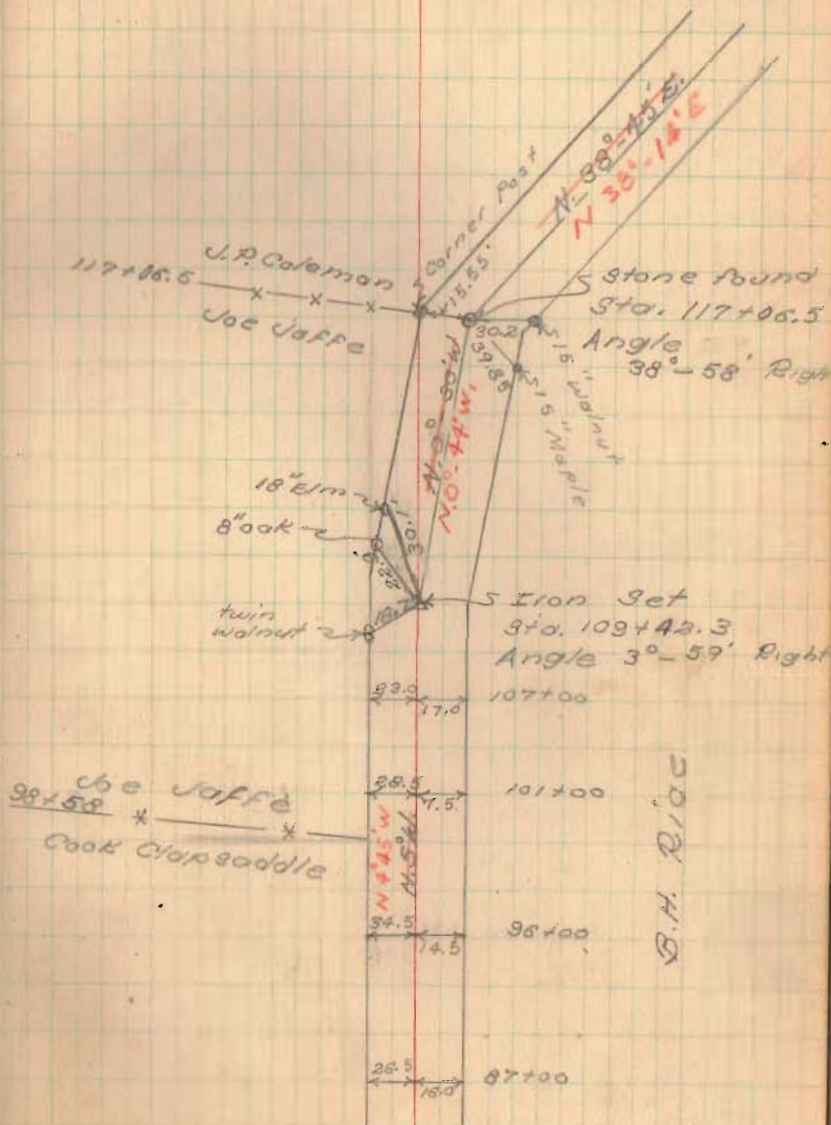 N-38°-45'E.
N 38°-14'E
Corner Post
15.55'
J.P. Coleman
117+06.5
Joe Jaffe
Stone found
Sta. 117+06.5
Angle
38°-58' Righ
30.2
39.85
15" Walnut
15" Maple
N. 0°-30'W
N.0°-44'W.
18" Elm
8" oak
30.1
22.2
18.7
twin
walnut
Iron Set
Sta. 109+42.3
Angle 3°-59' Right
23.0
17.0
107+00
28.5
7.5
101+00
Joe Jaffe
98+58
Cook Clapsaddle
N 4°45'W
N.5°W.
B.H. Rice
34.5
14.5
96+00
26.5
16.0
87+00